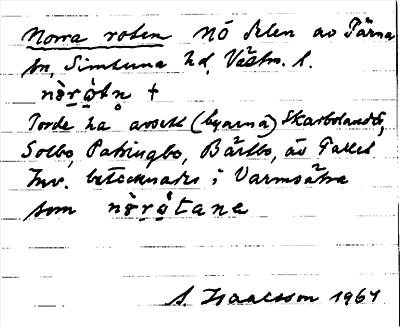 Norra roten NÖ delen av Tärna
sn, Simtuna hd, Västm. l.
nò̤rø̤̀tn †
Torde ha avsett (byarna) Skarbolandet,
Solbo, Patringbo, Bärbo, äv Gallet
Inv. betecknades i Varmsätra
som nò̤rǿ̤tana
S. Isaacsson 1961